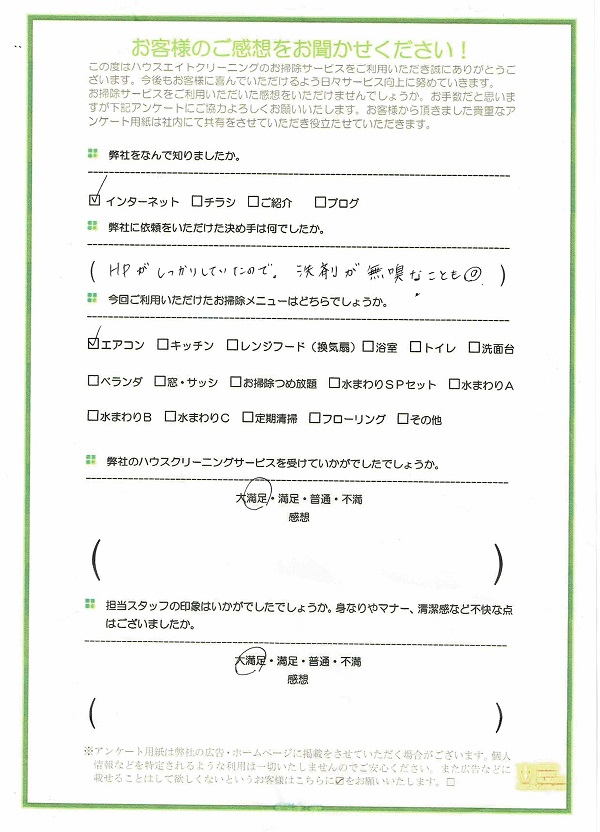 お客様のご感想をお聞かせください！
この度はハウスエイトクリーニングのお掃除サービスをご利用いただき誠にありがとうご
ざいます。今後もお客様に喜んでいただけるよう日々サービス向上に努めていきます。
お掃除サービスをご利用いただいた感想をいただけませんでしょうか。お手数だと思いま
すが下記アンケートにご協力よろしくお願いいたします。お客様から頂きました貴重なア
ンケート用紙は社内にて共有をさせていただき役立たせていただきます。
弊社をなんで知りましたか。
☑インターネット □チラシ □ご紹介 □ブログ
弊社に依頼をいただけた決め手は何でしたか。
（HPがしっかりしていたので。洗剤が無嗅なことも◎）
今回ご利用いただけたお掃除メニューはどちらでしょうか。
☑エアコン □キッチン □レンジフード（換気扇）□浴室 □トイレ □洗面台
□ベランダ □窓・サッシ □お掃除つめ放題 □水まわりＳＰセット □水まわりＡ
□水まわりＢ □水まわりＣ □定期清掃 □フローリング □その他
弊社のハウスクリーニングサービスを受けていかがでしたでしょうか。
大満足・満足・普通・不満
感想
（ ）
担当スタッフの印象はいかがでしたでしょうか。身なりやマナー、清潔感など不快な点
はございましたか。
大満足・満足・普通・不満
感想
（ ）
※アンケート用紙は弊社の広告・ホームページに掲載をさせていただく場合がございます。個人
情報などを特定されるような利用は一切いたしませんのでご安心ください。また広告などに
載せることはして欲しくないというお客様はこちらに☑をお願いいたします。□